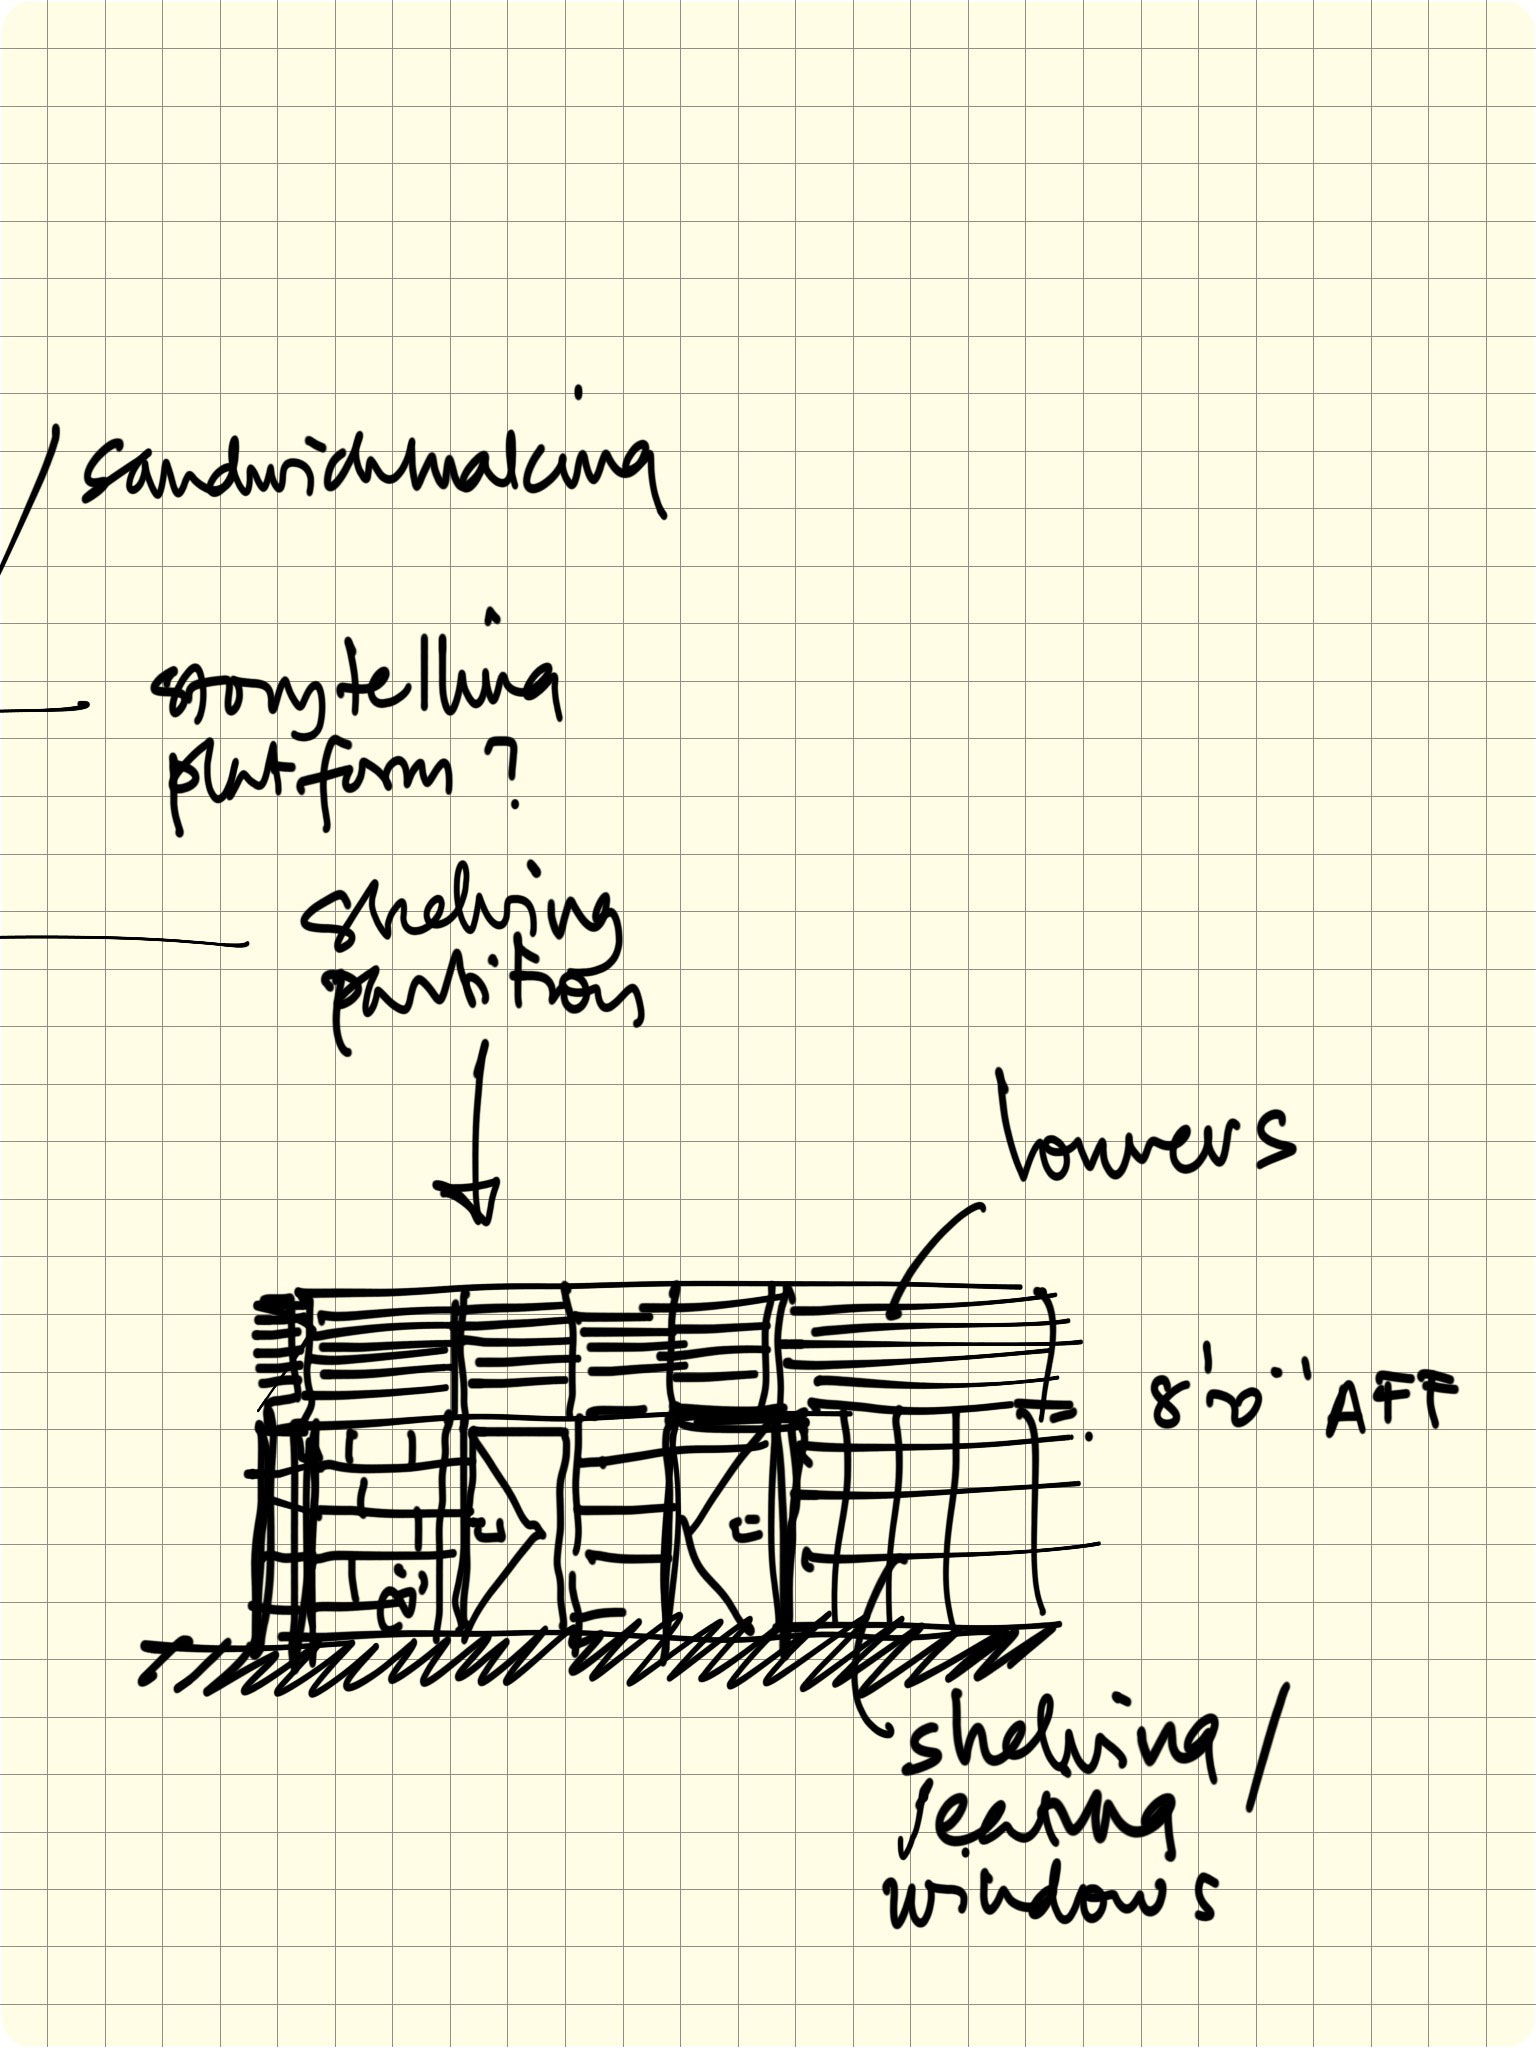 /sandwichmaking
storytelling
platform?
shelving
partition
louvers
8'-0" AFF
shelving/
seating
windows